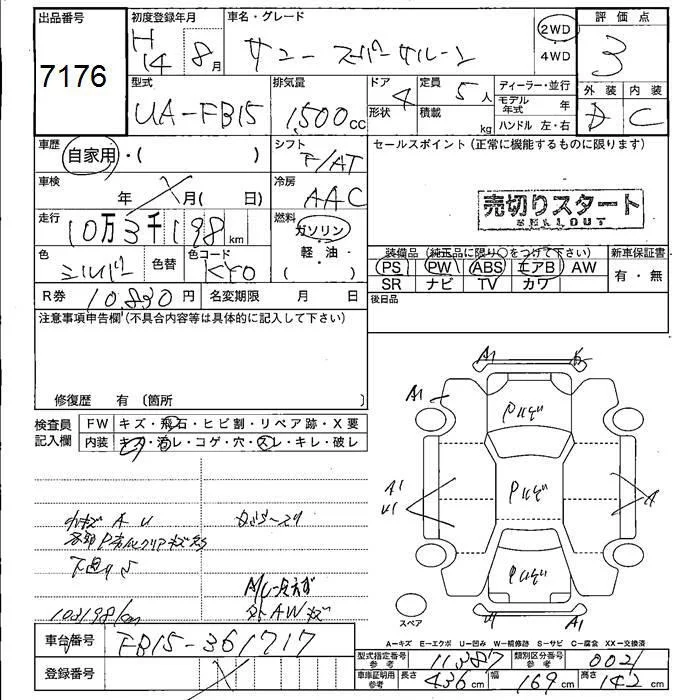 出品番号
7176
初度登録年月
H
14 8月
車名・グレード
サニー スーパーサルーン
2WD
4WD
評価点
3
型式
UA-FB15
排気量
1,500cc
ドア
4
形状
定員
5人
積載
kg
ディーラー・並行
モデル年式 年
ハンドル 左・右
外装 内装
D C
車歴
自家用・( )
シフト
F/AT
セールスポイント(正常に機能するものに限ります)
車検
年 月( 日)
冷房
AAC
売切りスタート
SELLOUT
走行
10万3千198km
燃料
ガソリン
軽・油・
( )
色
シルバー
色替
色コード
KY0
装備品(純正品に限り○をつけて下さい)
PS PW ABS エアB AW
SR ナビ TV カワ
新車保証書
有・無
R券 10,830円
名変期限 月 日
後日品
注意事項申告欄(不具合内容等は具体的に記入して下さい)
修復歴 有 〔箇所
検査員
記入欄
FW キズ・飛石・ヒビ割・リペア跡・X要
内装 キズ・汚レ・コゲ・穴・スレ・キレ・破レ
A1
A1
A1
U1
A
A1
スペア
103198km
車台番号
FB15-361717
登録番号
A-キズ E-エクボ U-凹み W-補修跡 S-サビ C-腐食 XX-交換済
型式指定番号
参考
11387
類別区分番号
参考
0021
車庫証明用
参考
長さ 436cm 幅 169cm 高さ 142cm